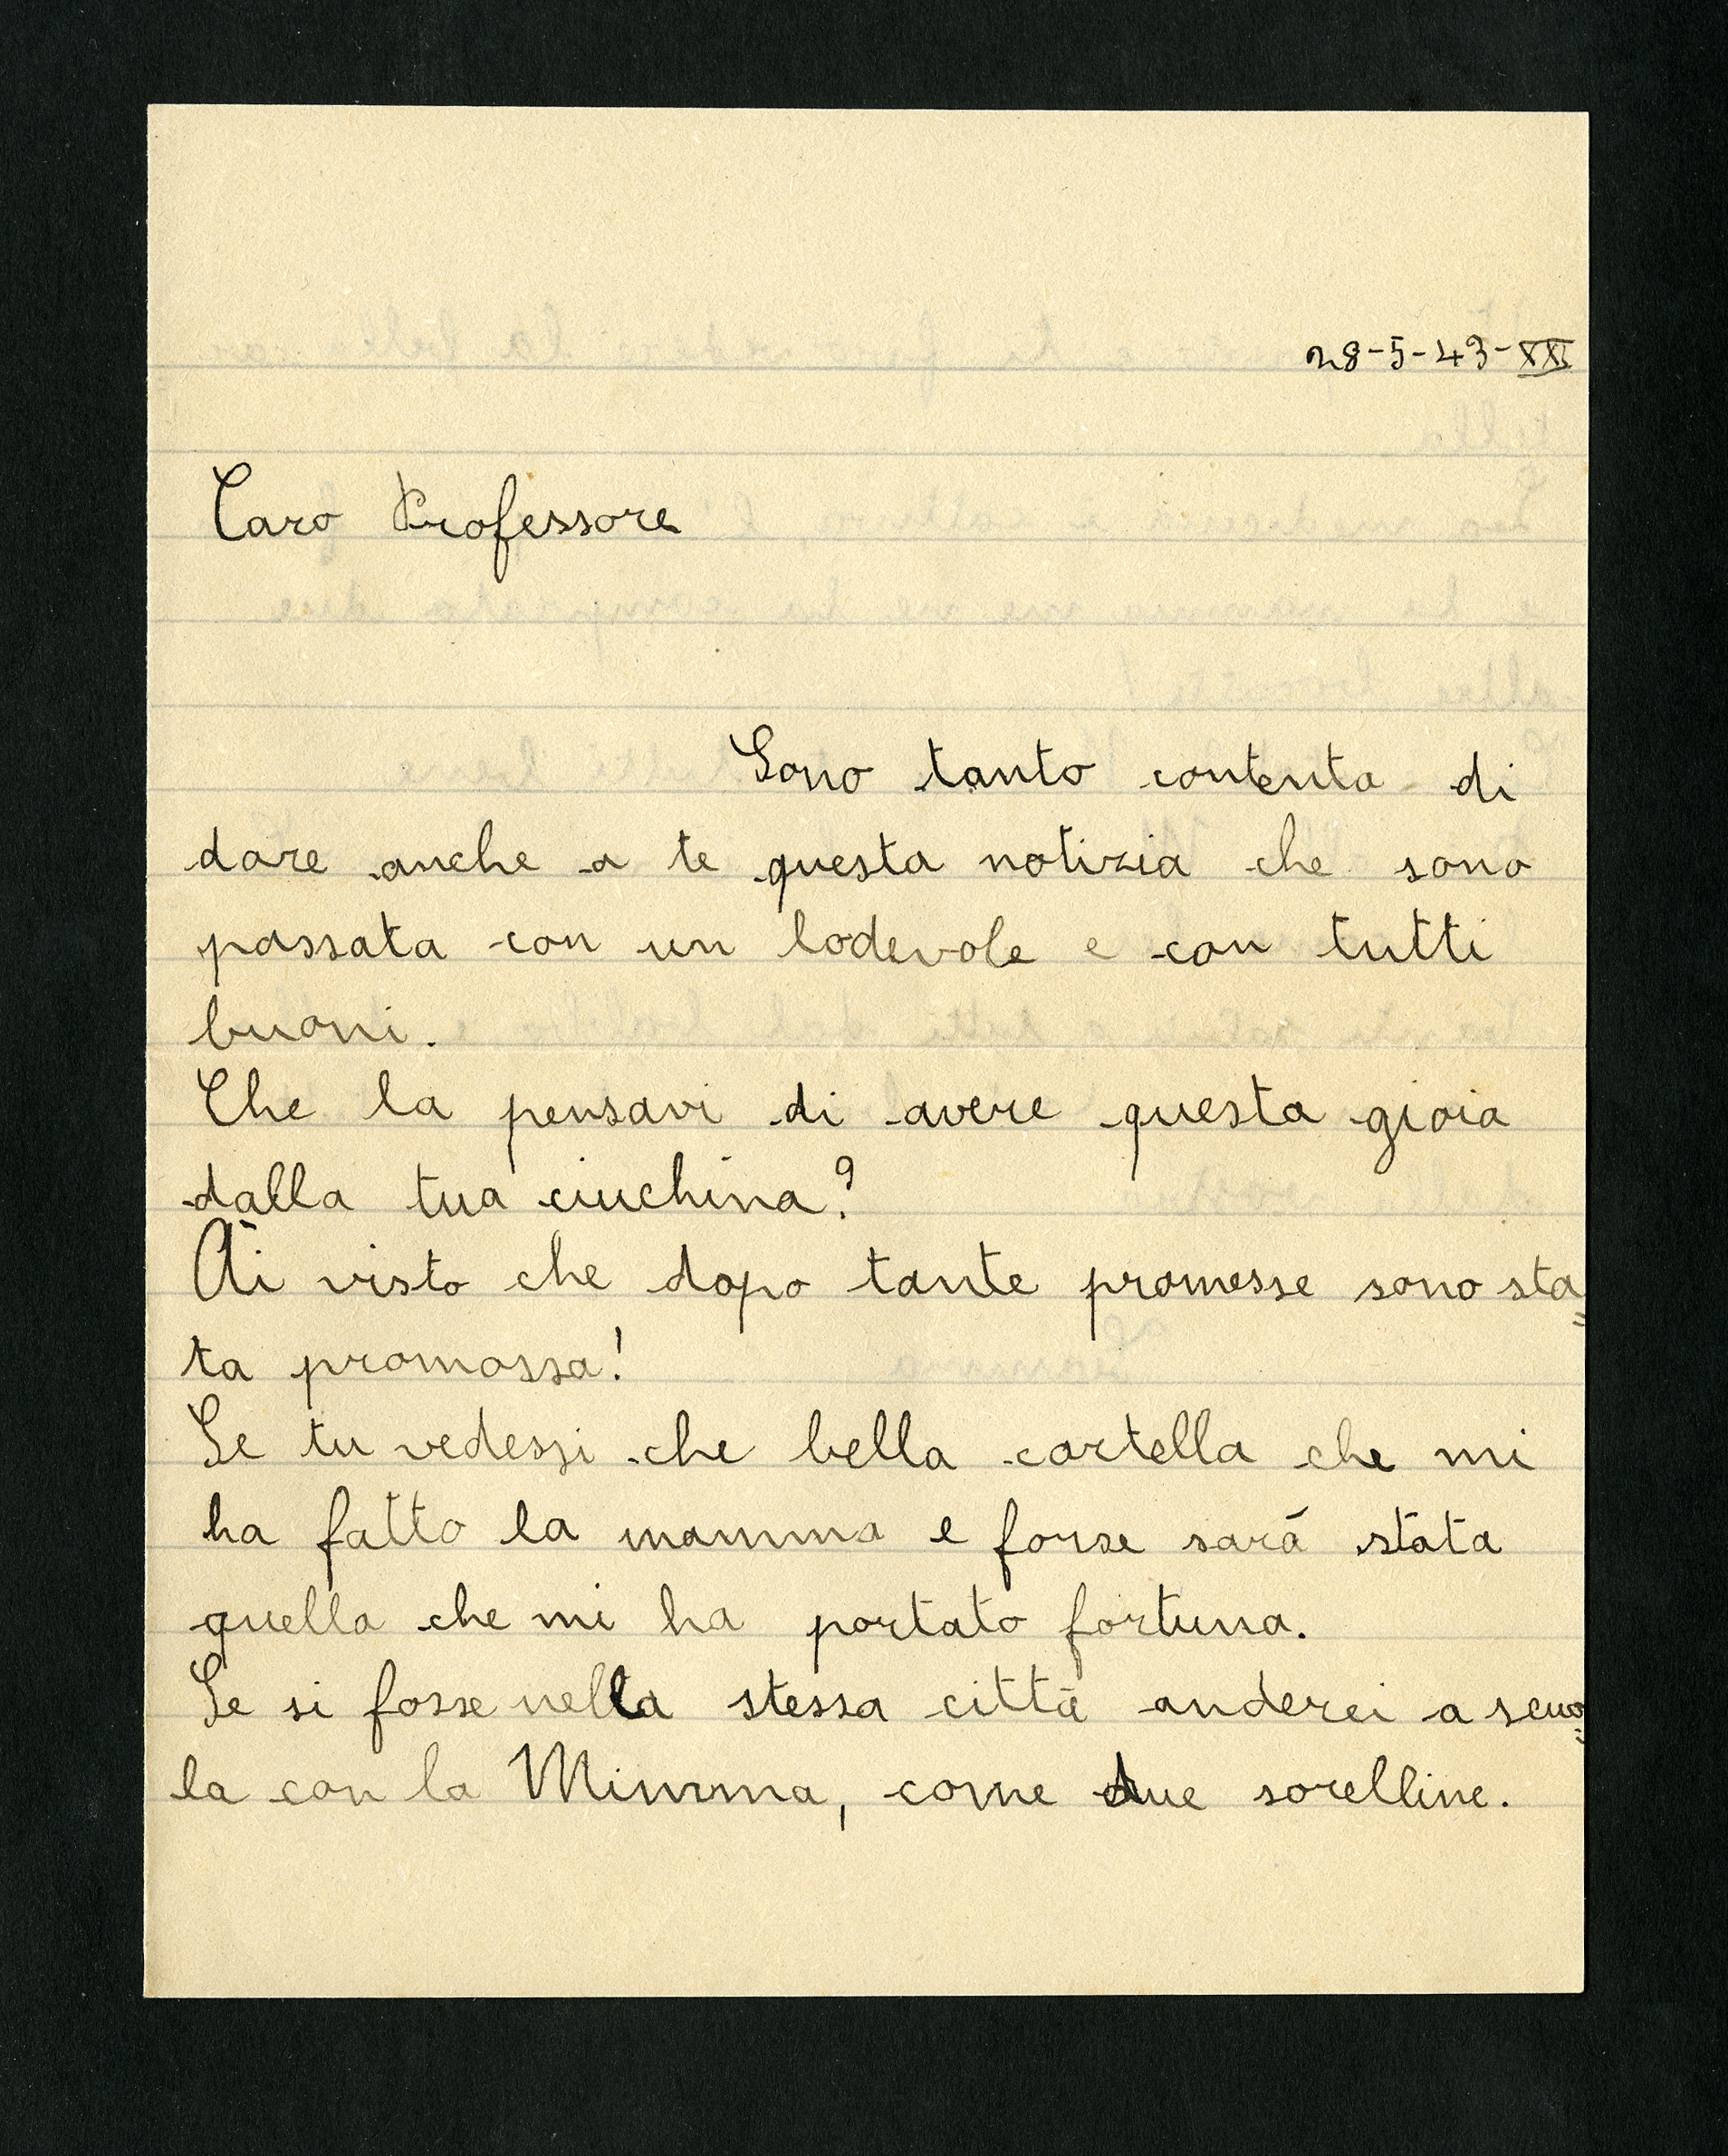 28-5-43-XXI
Caro Professore
Sono tanto contenta di
dare anche a te questa notizia che sono
passata con un lodevole e con tutti
buoni.
Che la pensavi di avere questa gioia
dalla tua ciuchina?
Ài visto che dopo tante promesse sono sta=
ta promossa!
Se tu vedessi che bella cartella che mi
ha fatto la mamma e forse sarà stata
quella che mi ha portato fortuna.
Se si fosse nella stessa città anderei a scuo=
la con la Mimma, come due sorelline.